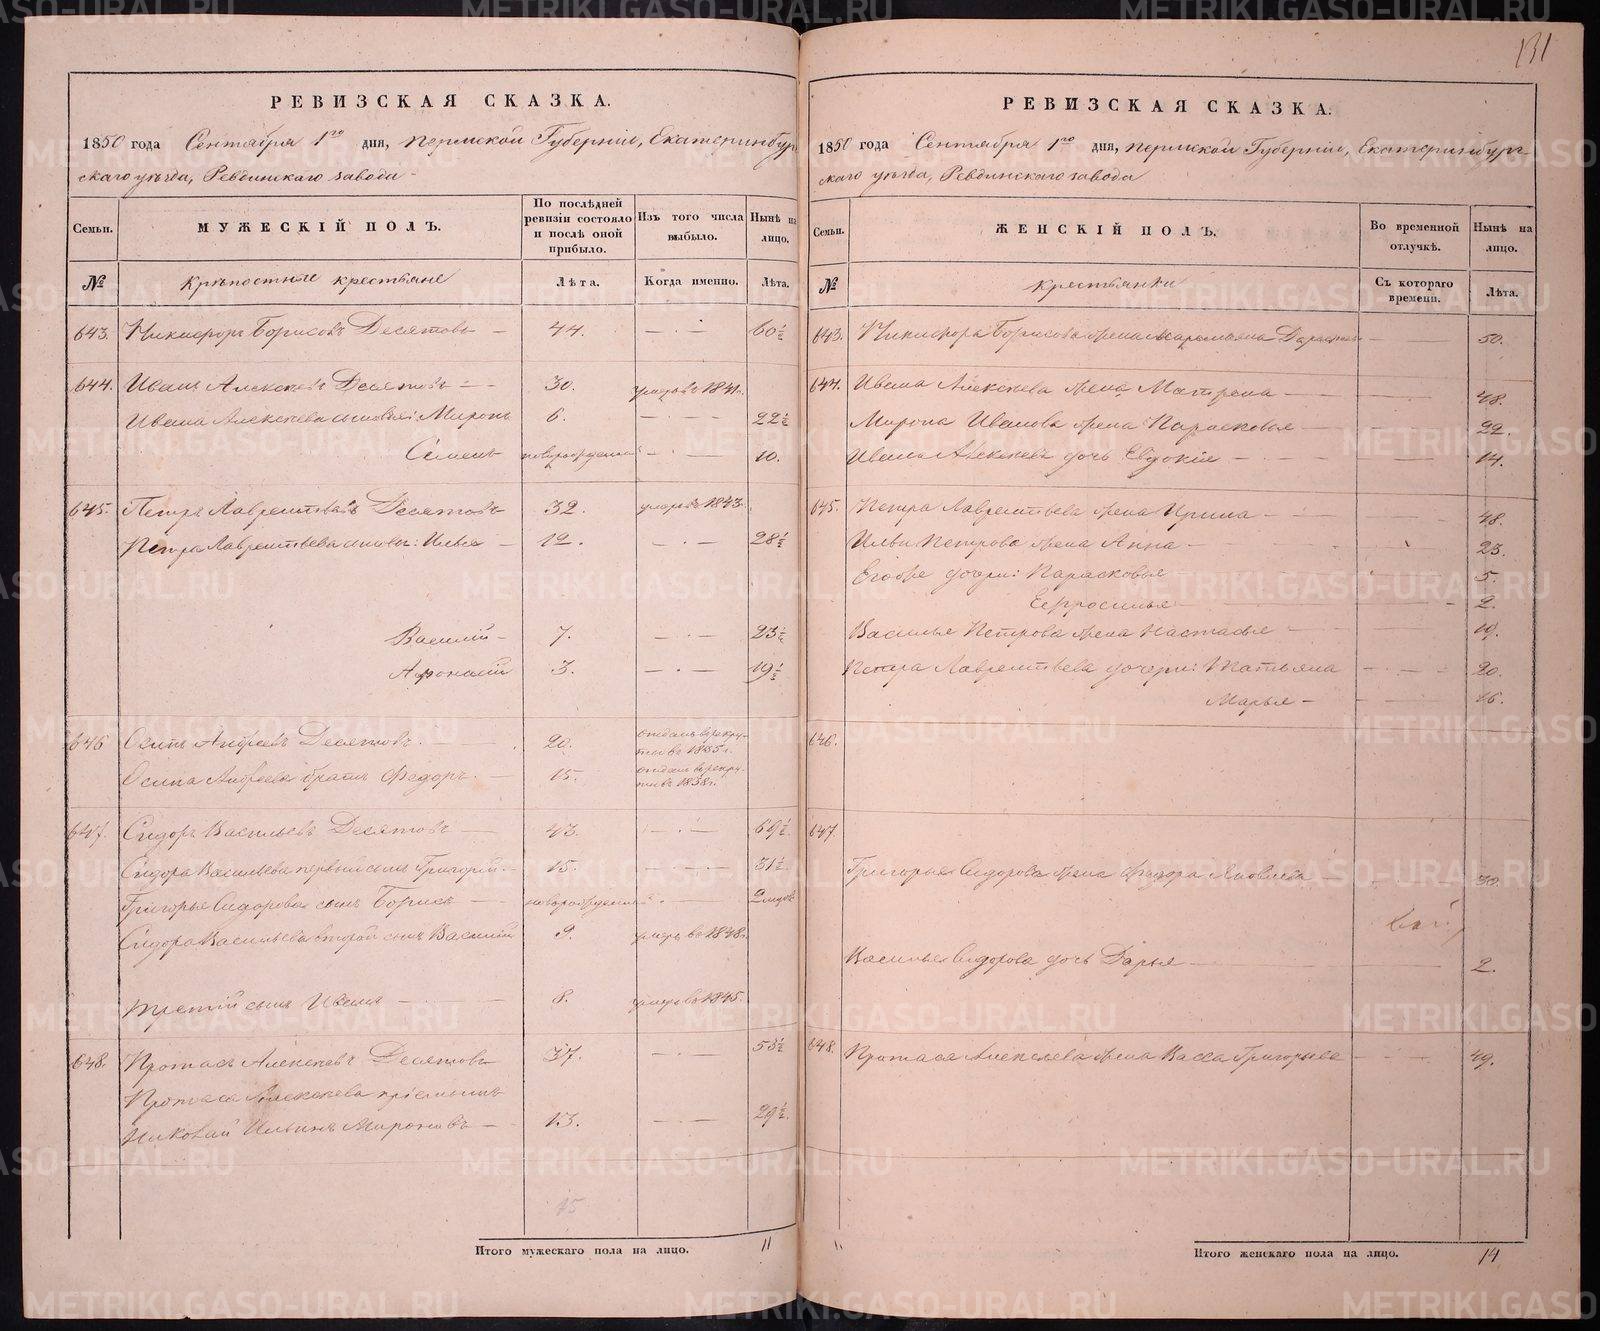 131
РЕВИЗСКАЯ СКАЗКА.
1850 года Сентября 1го дня, Пермской Губерніи, Екатеринбург-
скаго уѣзда, Ревдинскаго завода
Семьи.
МУЖЕСКІЙ ПОЛЪ.
По послѣдней
ревизіи состояло
и послѣ оной
прибыло.
Изъ того числа
выбыло.
Нынѣ на
лицо.
№
Крѣпостные крестьяне
Лѣта.
Когда именно.
Лѣта.
643. Никифоръ Борисовъ Десятовъ — 44. — 60½
644. Иванъ Алексѣевъ Десятовъ — 30. умеръ въ 1841г.
Ивана Алексѣева сыновья: Миронъ 6. — 22½
Семенъ новорожденный — 10.
645. Петръ Лаврентьевъ Десятовъ 32. умеръ въ 1843.
Петра Лаврентьева сыновья: Илья — 12. — 28½
Василій — 7. — 23½
Афонасій 3. — 19½
646 Осипъ Андреевъ Десятовъ. 20. отданъ въ рекру-
ты въ 1835г.
Осипа Андреева братъ Федоръ. — 15. отданъ въ рекру-
ты въ 1838г.
647. Сидоръ Васильевъ Десятовъ — 43. — 69½
Сидора Васильева первый сынъ Григорій — 15. — 31½
Григорья Сидорова сынъ Борисъ — новорожденный — 2 мцовъ
Сидора Васильева второй сынъ Василій 9. умеръ въ 1848г.
третій сынъ Иванъ — 8. умеръ въ 1845.
648. Протасъ Алексѣевъ Десятовъ 37. — 53½
Протаса Алексѣева пріемышъ
Николай Ильинъ Мироновъ — 13. — 29½
15
Итого мужескаго пола на лицо. 11
РЕВИЗСКАЯ СКАЗКА.
1850 года Сентября 1го дня, Пермской Губерніи, Екатеринбург-
скаго уѣзда, Ревдинскаго завода
Семьи.
ЖЕНСКІЙ ПОЛЪ.
Во временной
отлучкѣ.
Нынѣ на
лицо.
№
Крестьянки
Съ котораго
времени.
Лѣта.
643. Никифора Борисова жена — 50.
644. Ивана Алексѣева жена Матрена — 48.
Мирона Иванова жена Парасковья — 22.
Ивана Алексѣева дочь Евдокія — 14.
645. Петра Лаврентьева жена Ирина — 48.
Ильи Петрова жена Анна — 23.
Егожъ дочери: Парасковья — 5.
Ефросинья — 2.
Василья Петрова жена Настасья — 19.
Петра Лаврентьева дочери: Татьяна — 20.
Марья — 16.
646.
647.
Григорья Сидорова жена Федора Яковлева — 30.
Василья Сидорова дочь Дарья — 2.
648. Протаса Алексѣева жена Васса Григорьева — 49.
Итого женскаго пола на лицо. 14
METRIKI.GASO-URAL.RU